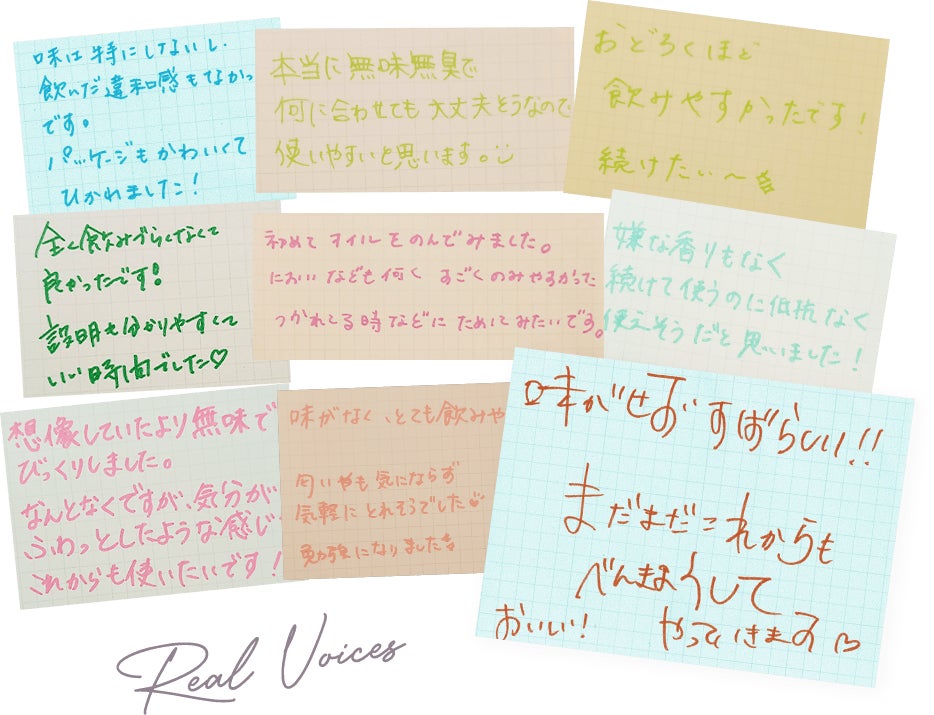 味は特にしないし、
飲んだ違和感もなかっ
です。
パッケージもかわいくて
ひかれました！
本当に無味無臭で
何に合わせても大丈夫そうなので
使いやすいと思います。
おどろくほど
飲みやすかったです！
続けたい〜
全く飲みづらくなくて
良かったです！
説明も分かりやすくて
いい時間でした♡
初めてオイルをのんでみました。
においなども何く すごくのみやすかった
つかれてる時などにためしてみたいです。
嫌な香りもなく
続けて使うのに低抗なく
使えそうだと思いました！
想像していたより無味で
びっくりしました。
なんとなくですが、気分が
ふわっとしたような感じ
これからも使いたいです！
味がなく、とても飲みや
匂いやも気にならず
気軽にとれそうでした
勉強になりました
味がせず すばらしい!!
まだまだこれからも
べんきょうして
おいしい！ やっていきます♡
Real Voices